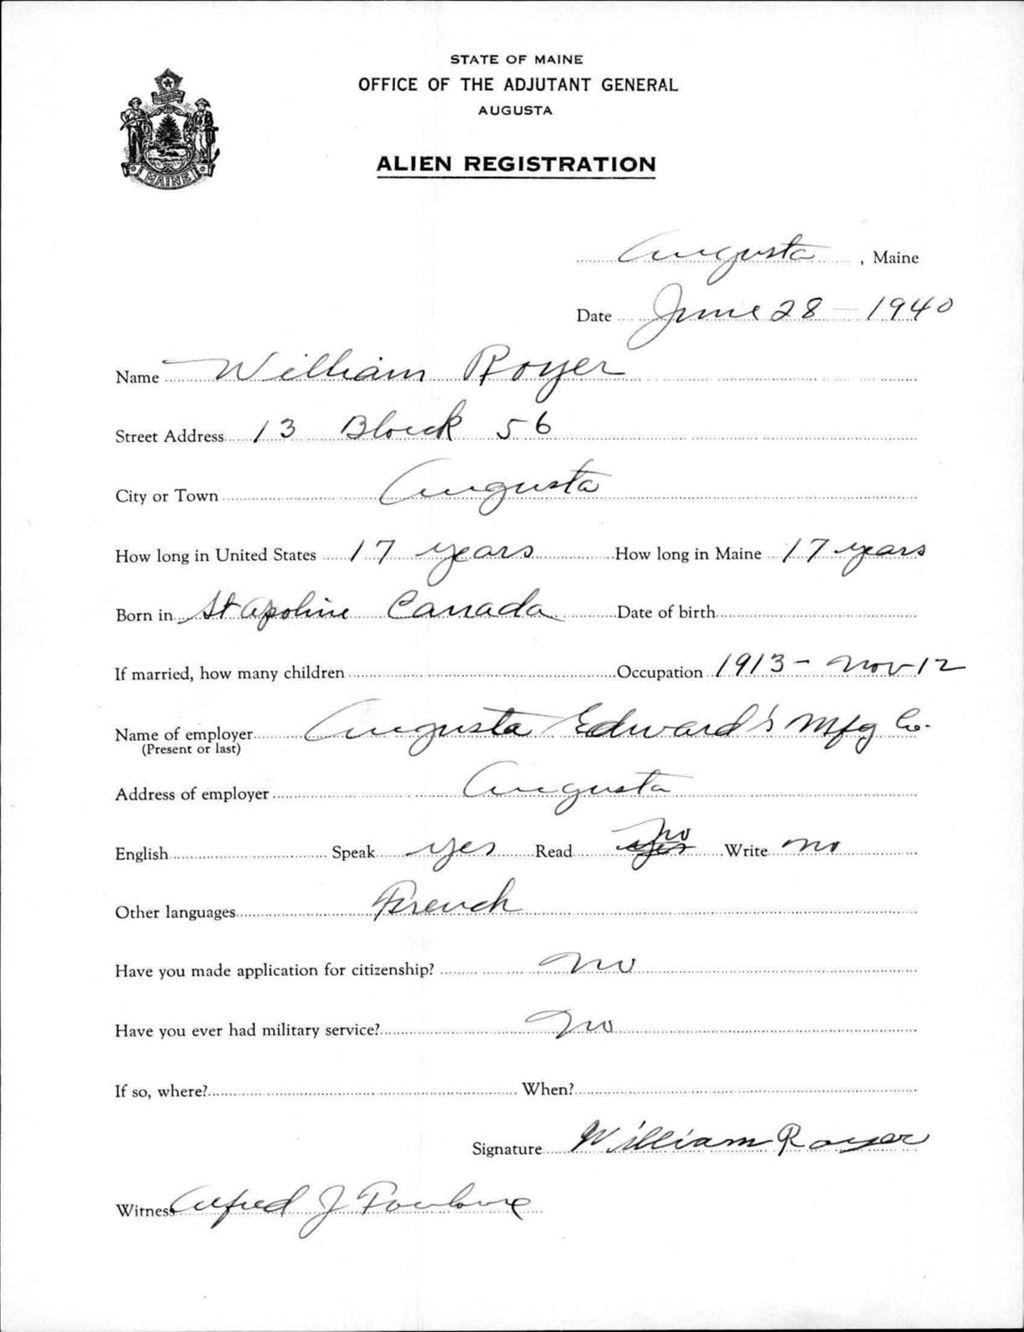 STATE OF MAINE
OFFICE OF THE ADJUTANT GENERAL
AUGUSTA
ALIEN REGISTRATION
MAINE
Augusta, Maine
Date June 28 - 1940
Name William Royer
Street Address 13 Blouck 56
City or Town Augusta
How long in United States 17 years How long in Maine 17 years
Born in St Apoline Canada Date of birth
If married, how many children Occupation 1913 - Nov - 12
Name of employer Augusta Edward's Mfg Co.
(Present or last)
Address of employer Augusta
English Speak yes Read yes no Write no
Other languages French
Have you made application for citizenship? no
Have you ever had military service? no
If so, where? When?
Signature William Royer
Witness Alfred J